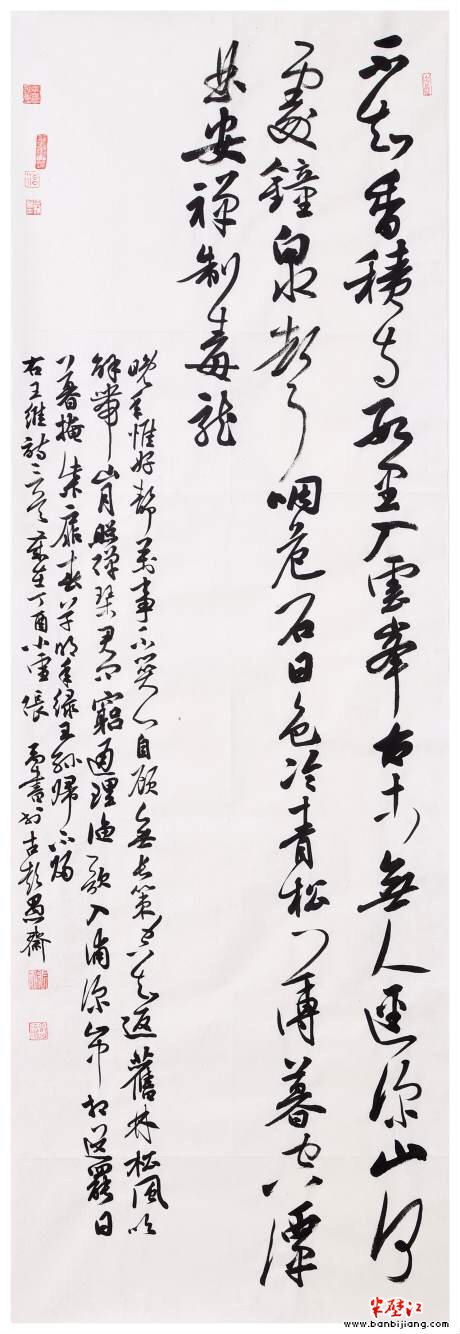 不知香積寺數里入雲峯古木無人逕深山何
處鐘泉聲咽危石日色冷青松薄暮空潭
曲安禪制毒龍
晚年惟好靜萬事不關心自顧無長策空知返舊林松風吹
解帶山月照彈琴君問窮通理漁歌入浦深山中相送罷日
暮掩柴扉春草明年綠王孫歸不歸
右王維詩三首歲在丁酉小雪張書於古彭愚齋
半壁江
www.banbijiang.com